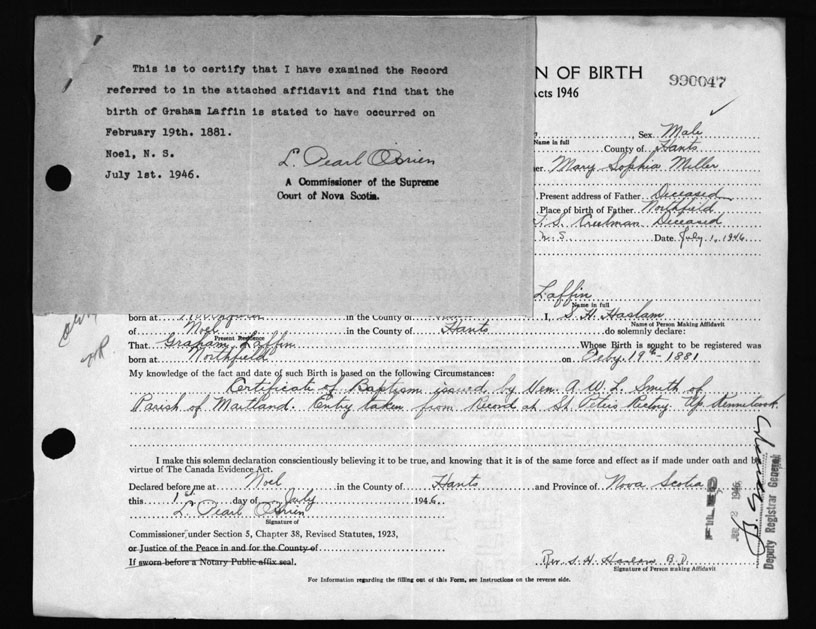 This is to certify that I have examined the Record
referred to in the attached affidavit and find that the
birth of Graham Laffin is stated to have occurred on
February 19th. 1881.
Noel, N. S.
July 1st. 1946.
L. Pearl O'Brien
A Commissioner of the Supreme
Court of Nova Scotia.
N OF BIRTH
990047
Acts 1946
Sex Male
Name in full
County of Hants
er Mary Sophia Miller
Present address of Father Deceased
Place of birth of Father Northfield
S. Creelman Deceased
N. S. Date July 1, 1946
Laffin
Name in full
born at in the County of I, S. H. Haslam
Name of Person Making Affidavit
of Noel in the County of Hants do solemnly declare:
Present Residence
That Graham Laffin Whose Birth is sought to be registered was
born at Northfield on Feby. 19th - 1881
My knowledge of the fact and date of such Birth is based on the following Circumstances:
Certificate of Baptism issued by Ven. A. W. L. Smith of
Parish of Maitland. Entry taken from Record at St Peters Rectory Up. Kennetcook.
I make this solemn declaration conscientiously believing it to be true, and knowing that it is of the same force and effect as if made under oath and by
virtue of The Canada Evidence Act.
Declared before me at Noel in the County of Hants and Province of Nova Scotia
this 1st day of July 1946.
L. Pearl O'Brien
Signature of
Commissioner, under Section 5, Chapter 38, Revised Statutes, 1923,
or Justice of the Peace in and for the County of
If sworn before a Notary Public affix seal.
Rev. S. H. Haslam B.D.
Signature of Person making Affidavit
For Information regarding the filling out of this Form, see Instructions on the reverse side.
FILED
2 1946
Deputy Registrar General